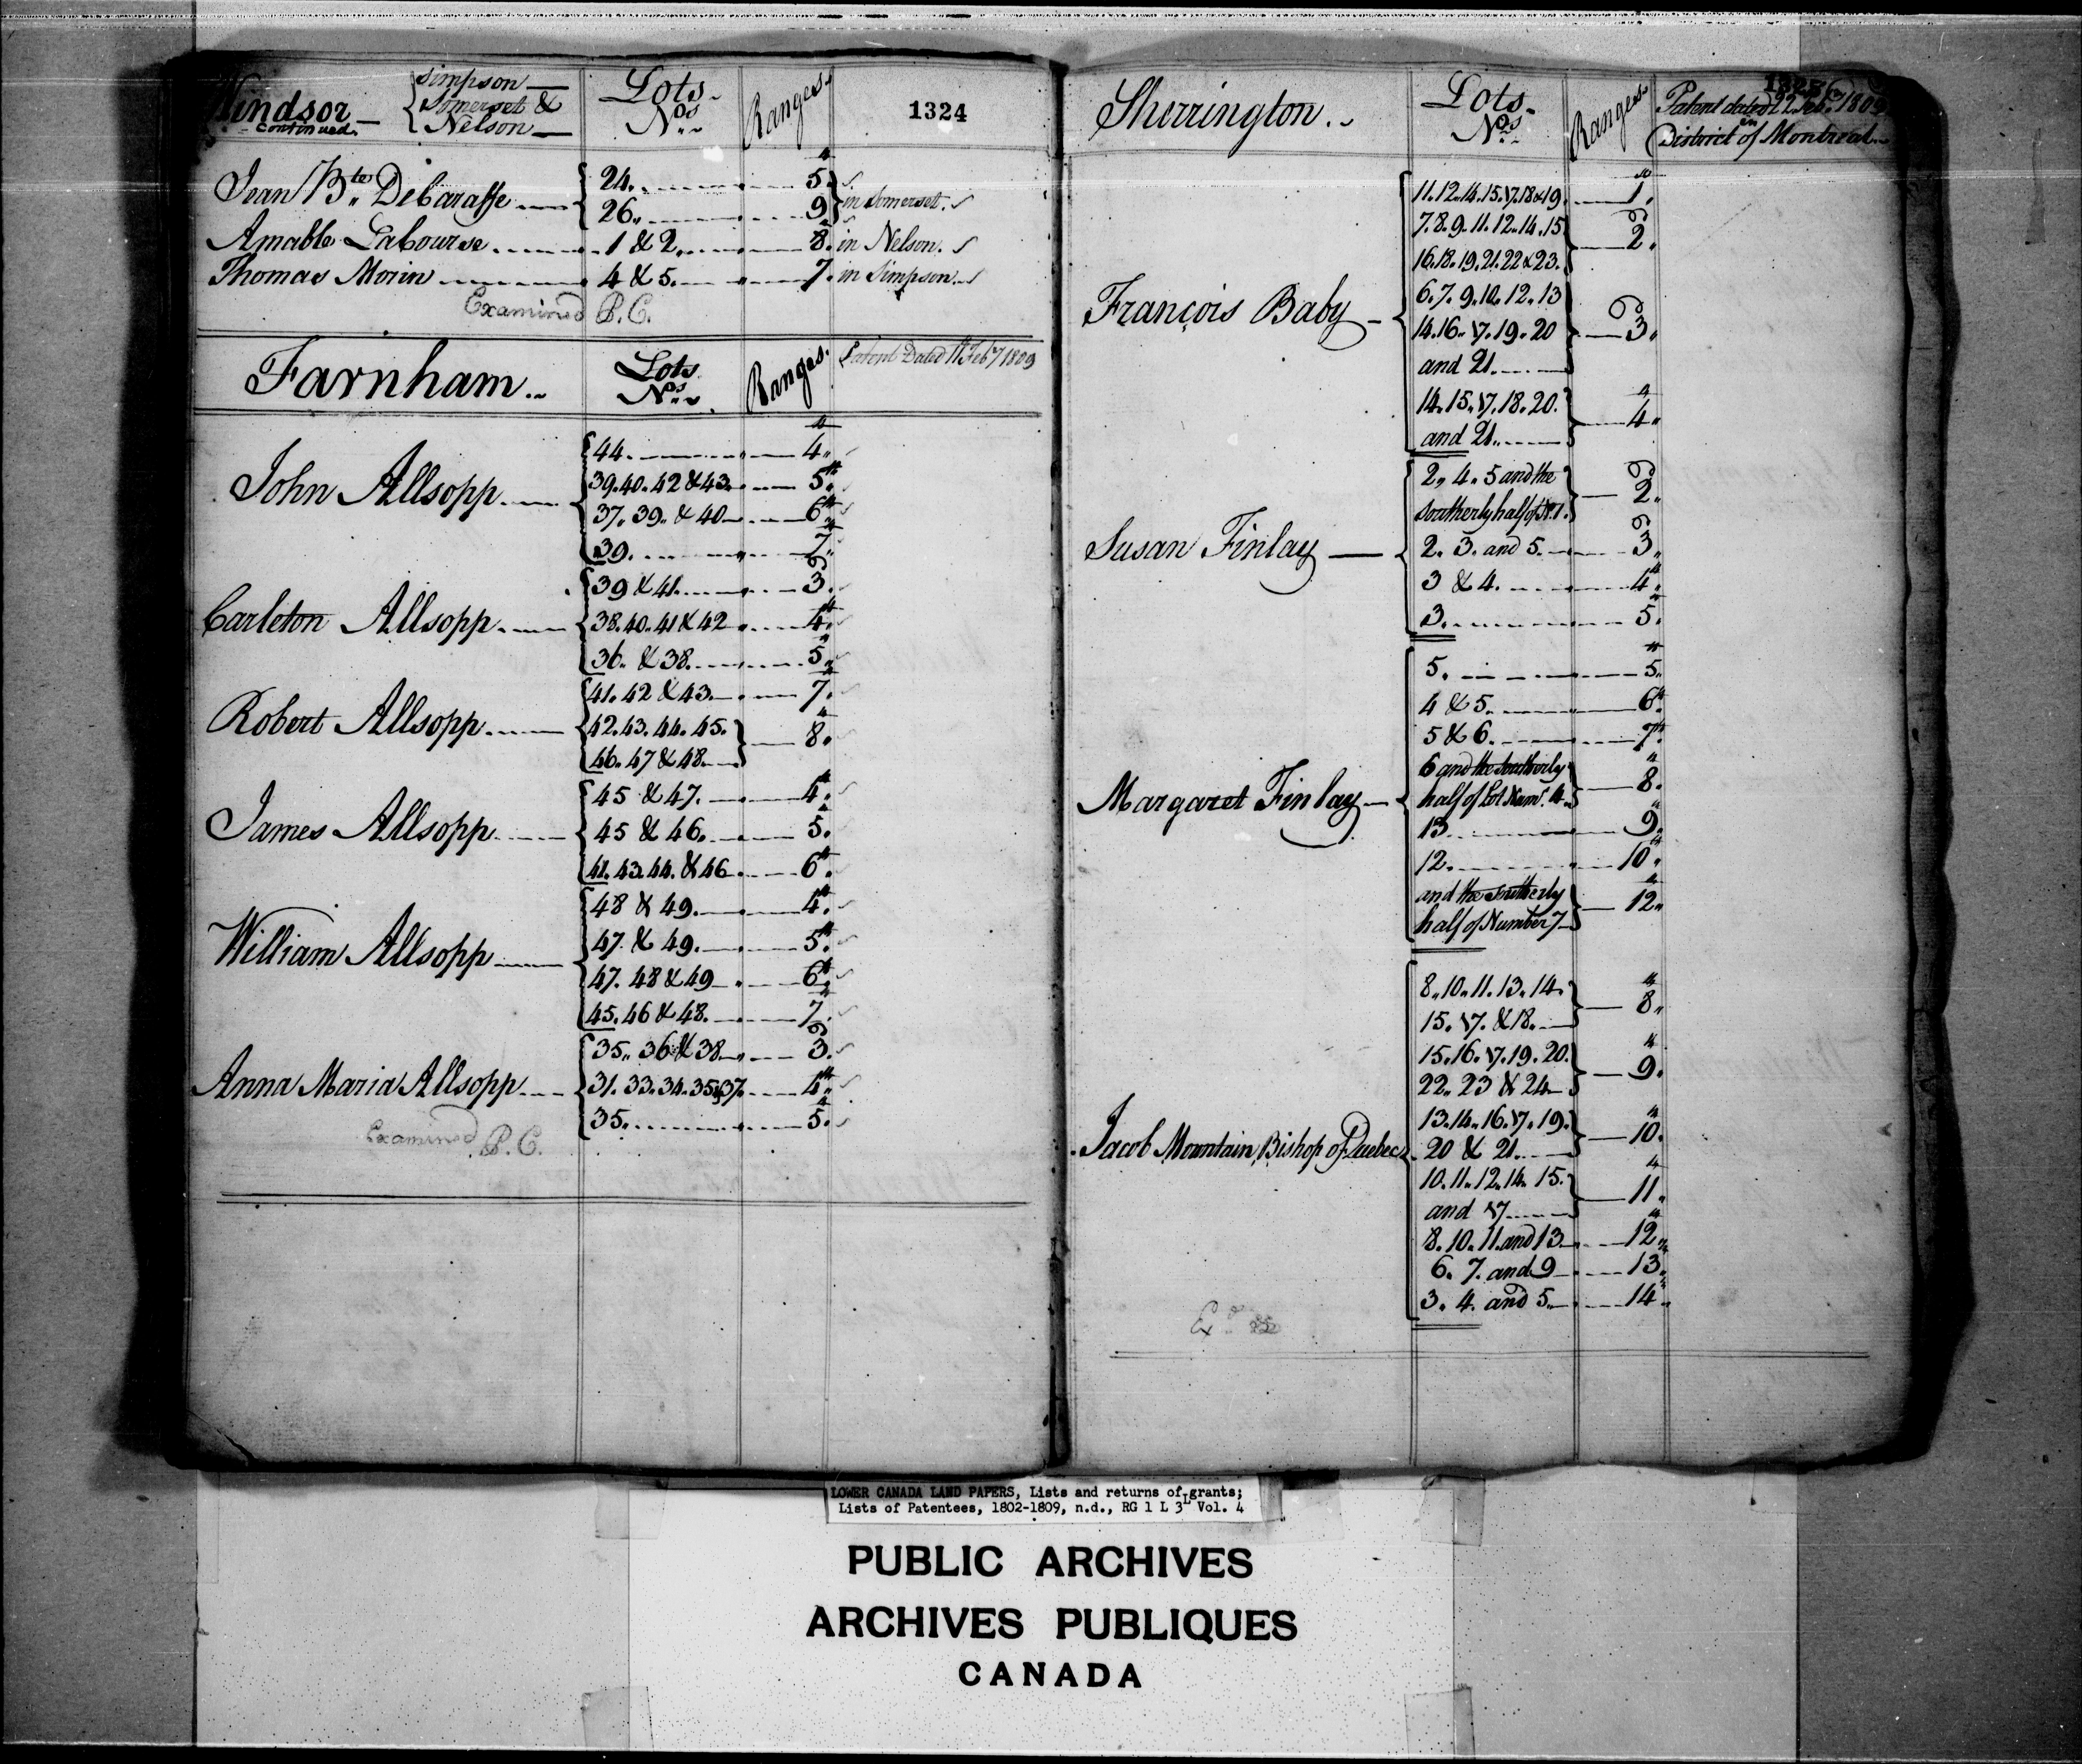 Windsor continued. { Simpson Somerset & Nelson Lots Nos. Ranges. 1324
Jean Bte. Debarasse { 24. 5th } in Somerset.
26. 9
Amable Labourse 1 & 2. 8. in Nelson.
Thomas Morin 4 & 5. 7. in Simpson.
Examined P.C.
Farnham. Lots Nos. Ranges. Patent Dated 11 Feby 1809
John Allsopp { 44. 4th
39. 40. 42 & 43. 5th
37. 39. & 40 6th
39. 7th
Carleton Allsopp { 39 & 41. 3d
38. 40. 41 & 42 4th
36. & 38. 5th
Robert Allsopp { 41. 42 & 43. 7th
42. 43. 44. 45. } 8th
46. 47 & 48.
James Allsopp { 45 & 47. 4th
45 & 46. 5th
41. 43. 44. & 46 6th
William Allsopp { 48 & 49. 4th
47. & 49. 5th
47. 48 & 49 6th
45. 46 & 48. 7th
Anna Maria Allsopp { 35. 36 & 38. 3d
31. 33. 34. 35 & 37. 4th
35. 5th
Examined P.C.
Sherrington. Lots Nos. Ranges. Patent dated 22 Feb. 1809
in District of Montreal
François Baby { 11. 12. 14. 15. 17. 18 & 19 1st
7. 8. 9. 11. 12. 14. 15 } 2d
16. 18. 19. 21. 22 & 23.
6. 7. 9. 10. 12. 13 } 3d
14. 16. 17. 19. 20
and 21.
14. 15. 17. 18. 20. } 4th
and 21.
Susan Finlay { 2. 4. 5 and the } 2d
Southerly half of No. 1.
2. 3. and 5. 3d
3 & 4. 4th
3. 5th
Margaret Finlay { 5. 5th
4 & 5. 6th
5 & 6. 7th
6 and the Southerly } 8th
half of Lot Numr. 4
13 9th
12. 10th
and the Southerly } 12th
half of Number 7
Jacob Mountain, Bishop of Quebec { 8. 10. 11. 13. 14. } 8th
15. 17. & 18.
15. 16. 17. 19. 20. } 9th
22. 23 & 24
13. 14. 16. 17. 19. } 10th
20 & 21.
10. 11. 12. 14. 15. } 11th
and 17
8. 10. 11. and 13 12th
6. 7. and 9 13th
3. 4. and 5. 14th
Exd.
LOWER CANADA LAND PAPERS, Lists and returns of grants;
Lists of Patentees, 1802-1809, n.d., RG 1 L 3L Vol. 4
PUBLIC ARCHIVES
ARCHIVES PUBLIQUES
CANADA